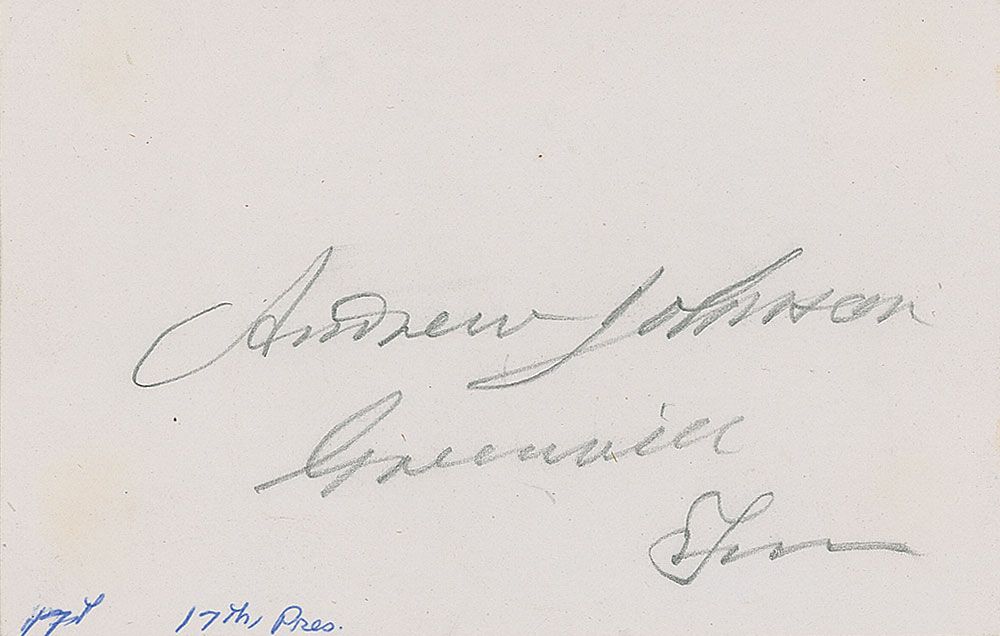 Andrew Johnson
Greenvill
Tenn
17th, Pres.